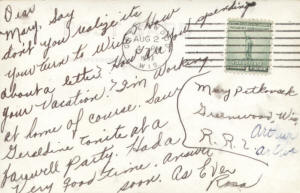 Dear
Mary, Say
don't you realize its
your turn to write? How
about a letter? How are you spending
your Vacation? I'm working
at home of course. Saw
Geraldine tonite at a
farwell Party. Had a
Very good time. answer
soon. As Ever
Rosa
AUG 2
WIS
Mary Petkovsek
Greenwood, Wis
R. R. 2